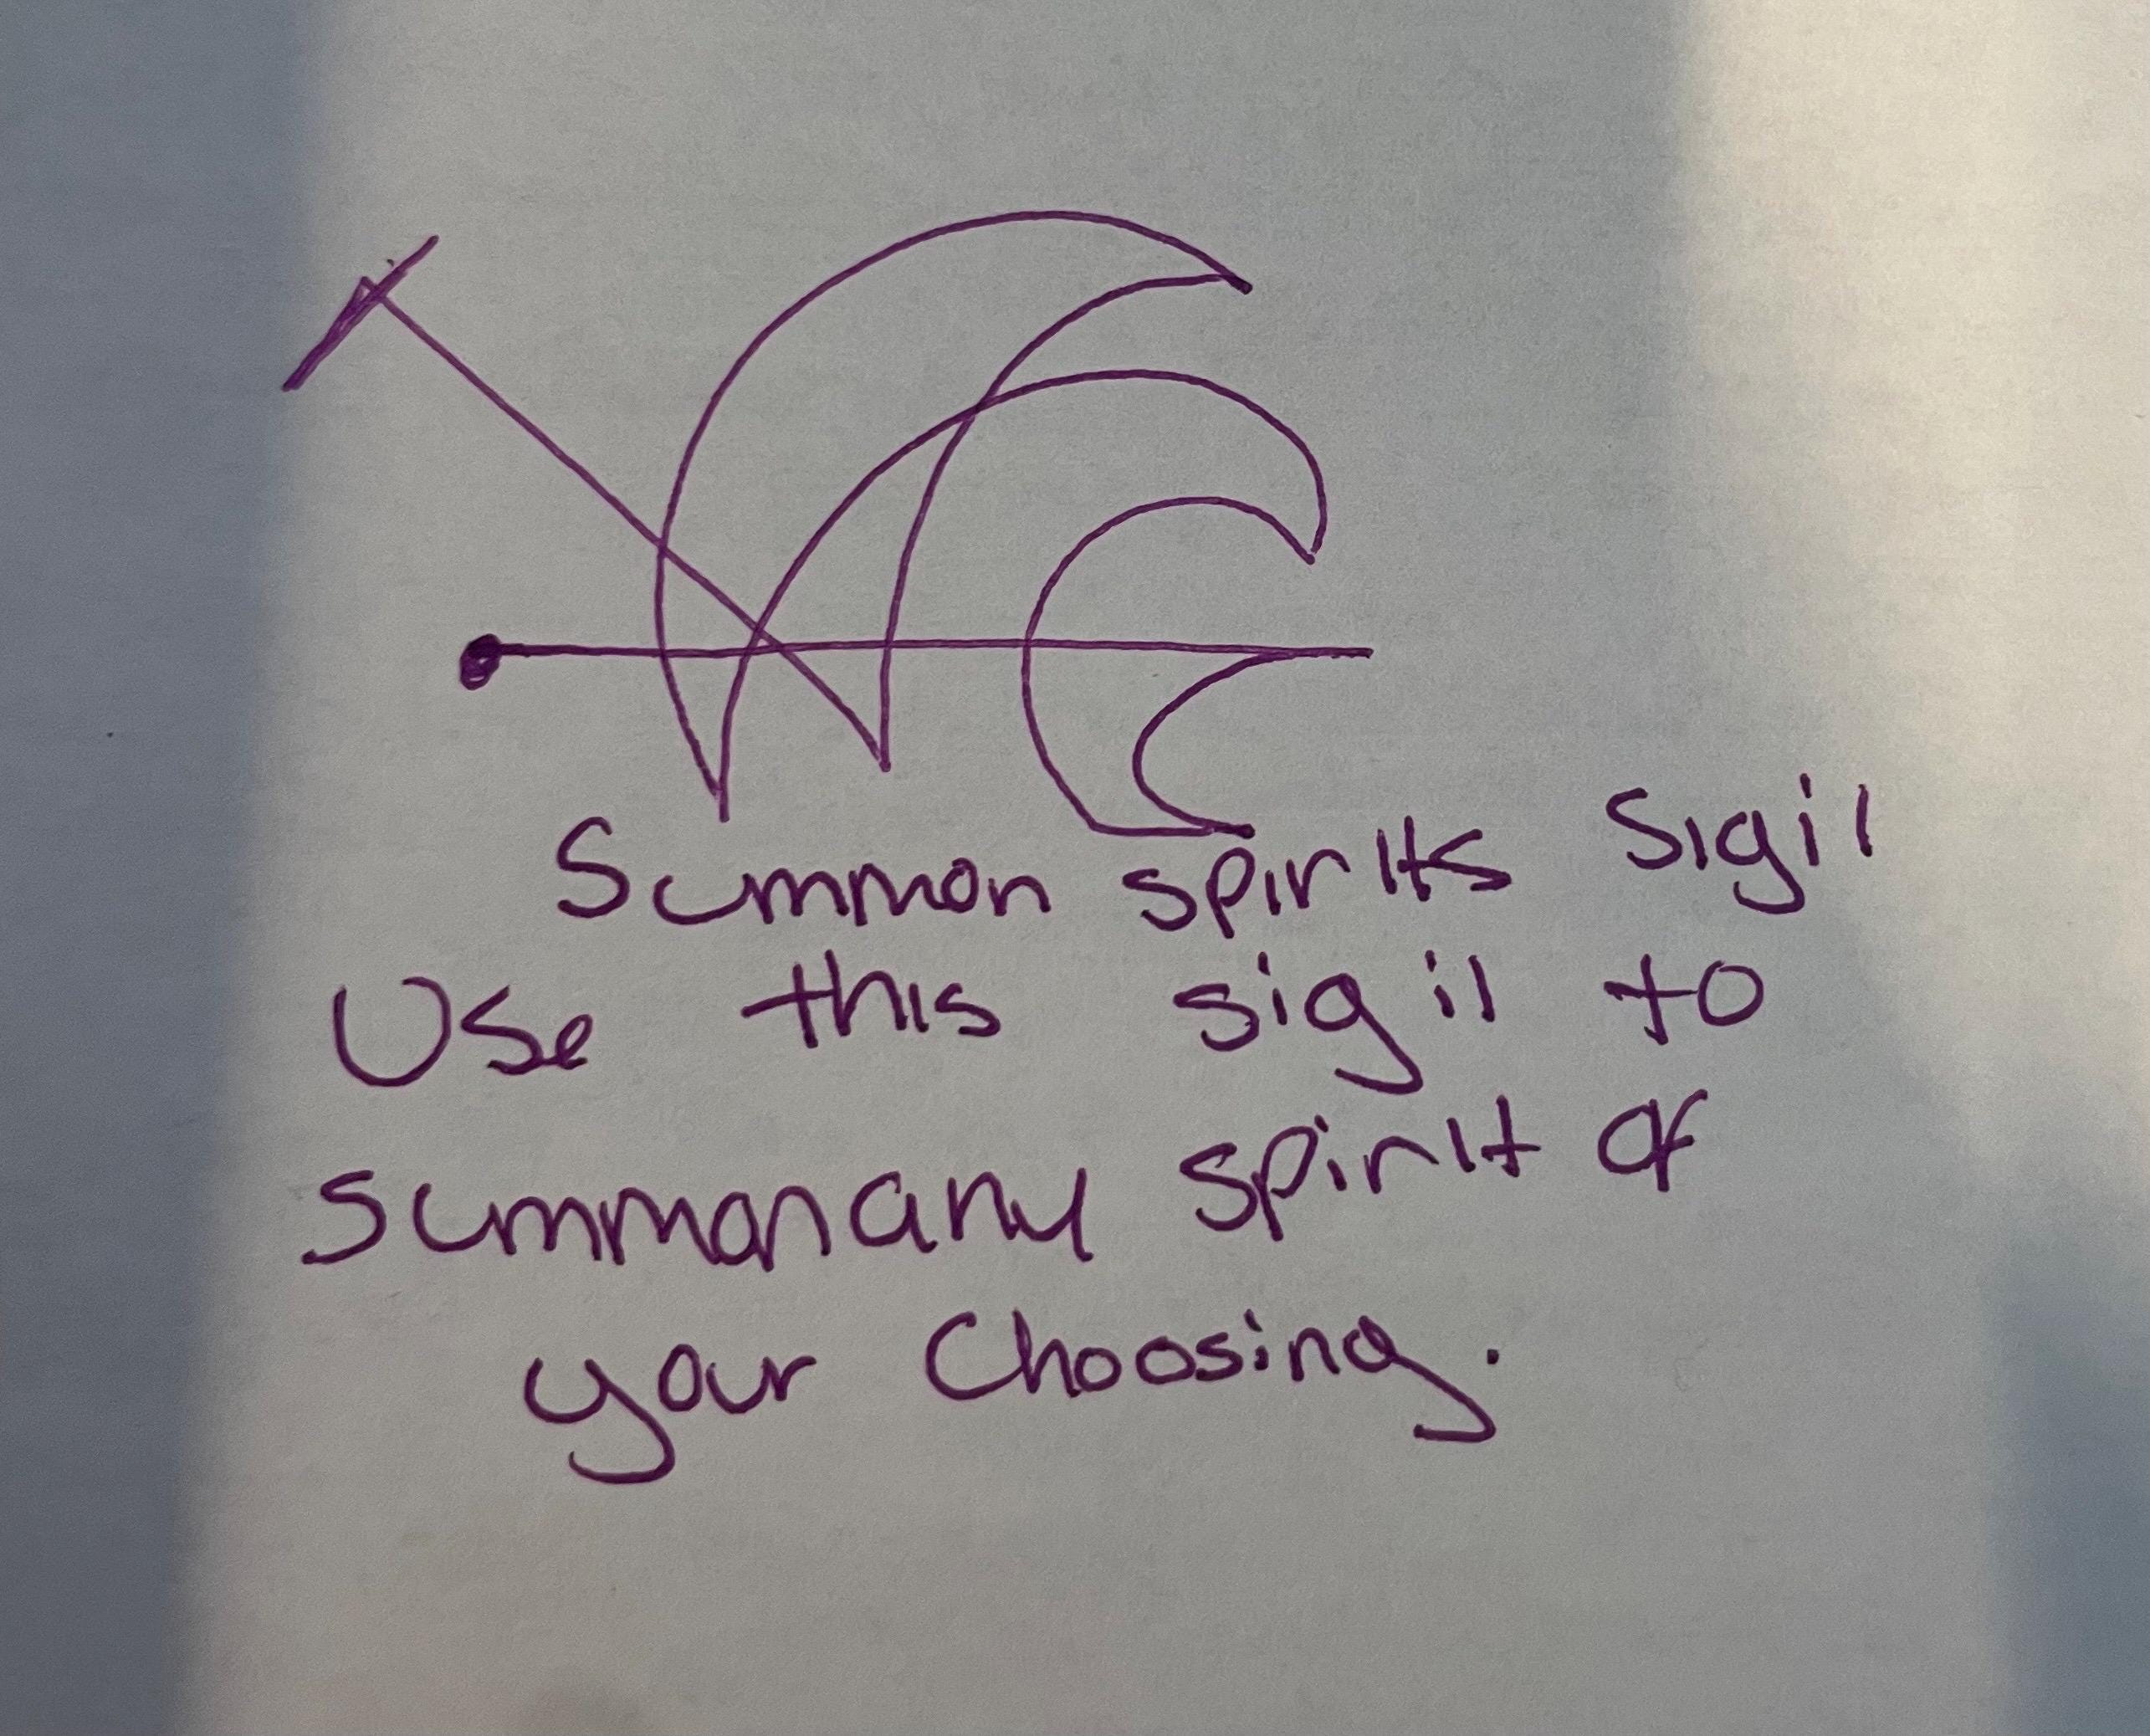 Summon spirits Sigil
Use this sigil to
summon any spirit of
your Choosing.